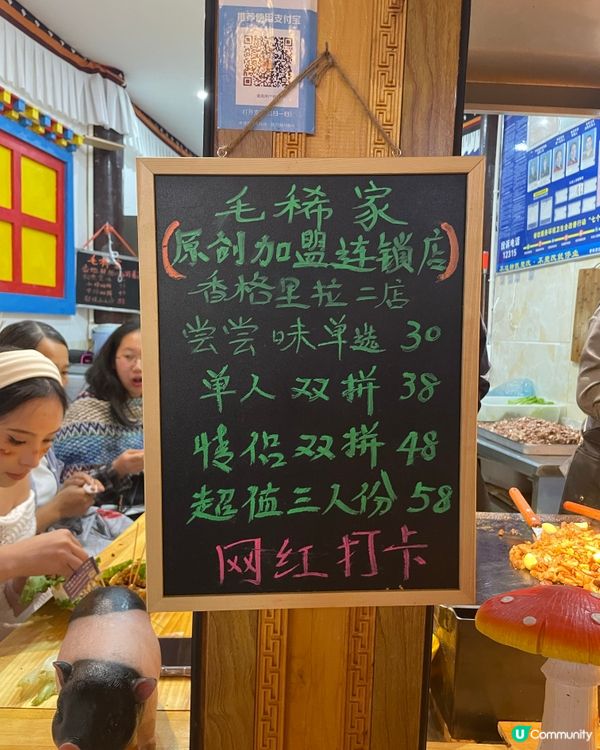 推荐使用支付宝
毛稀家
(原创加盟连锁店)
香格里拉二店
尝尝味单选 30
单人双拼 38
情侣双拼 48
超值三人份 58
网红打卡
投诉电话
12315
U Community